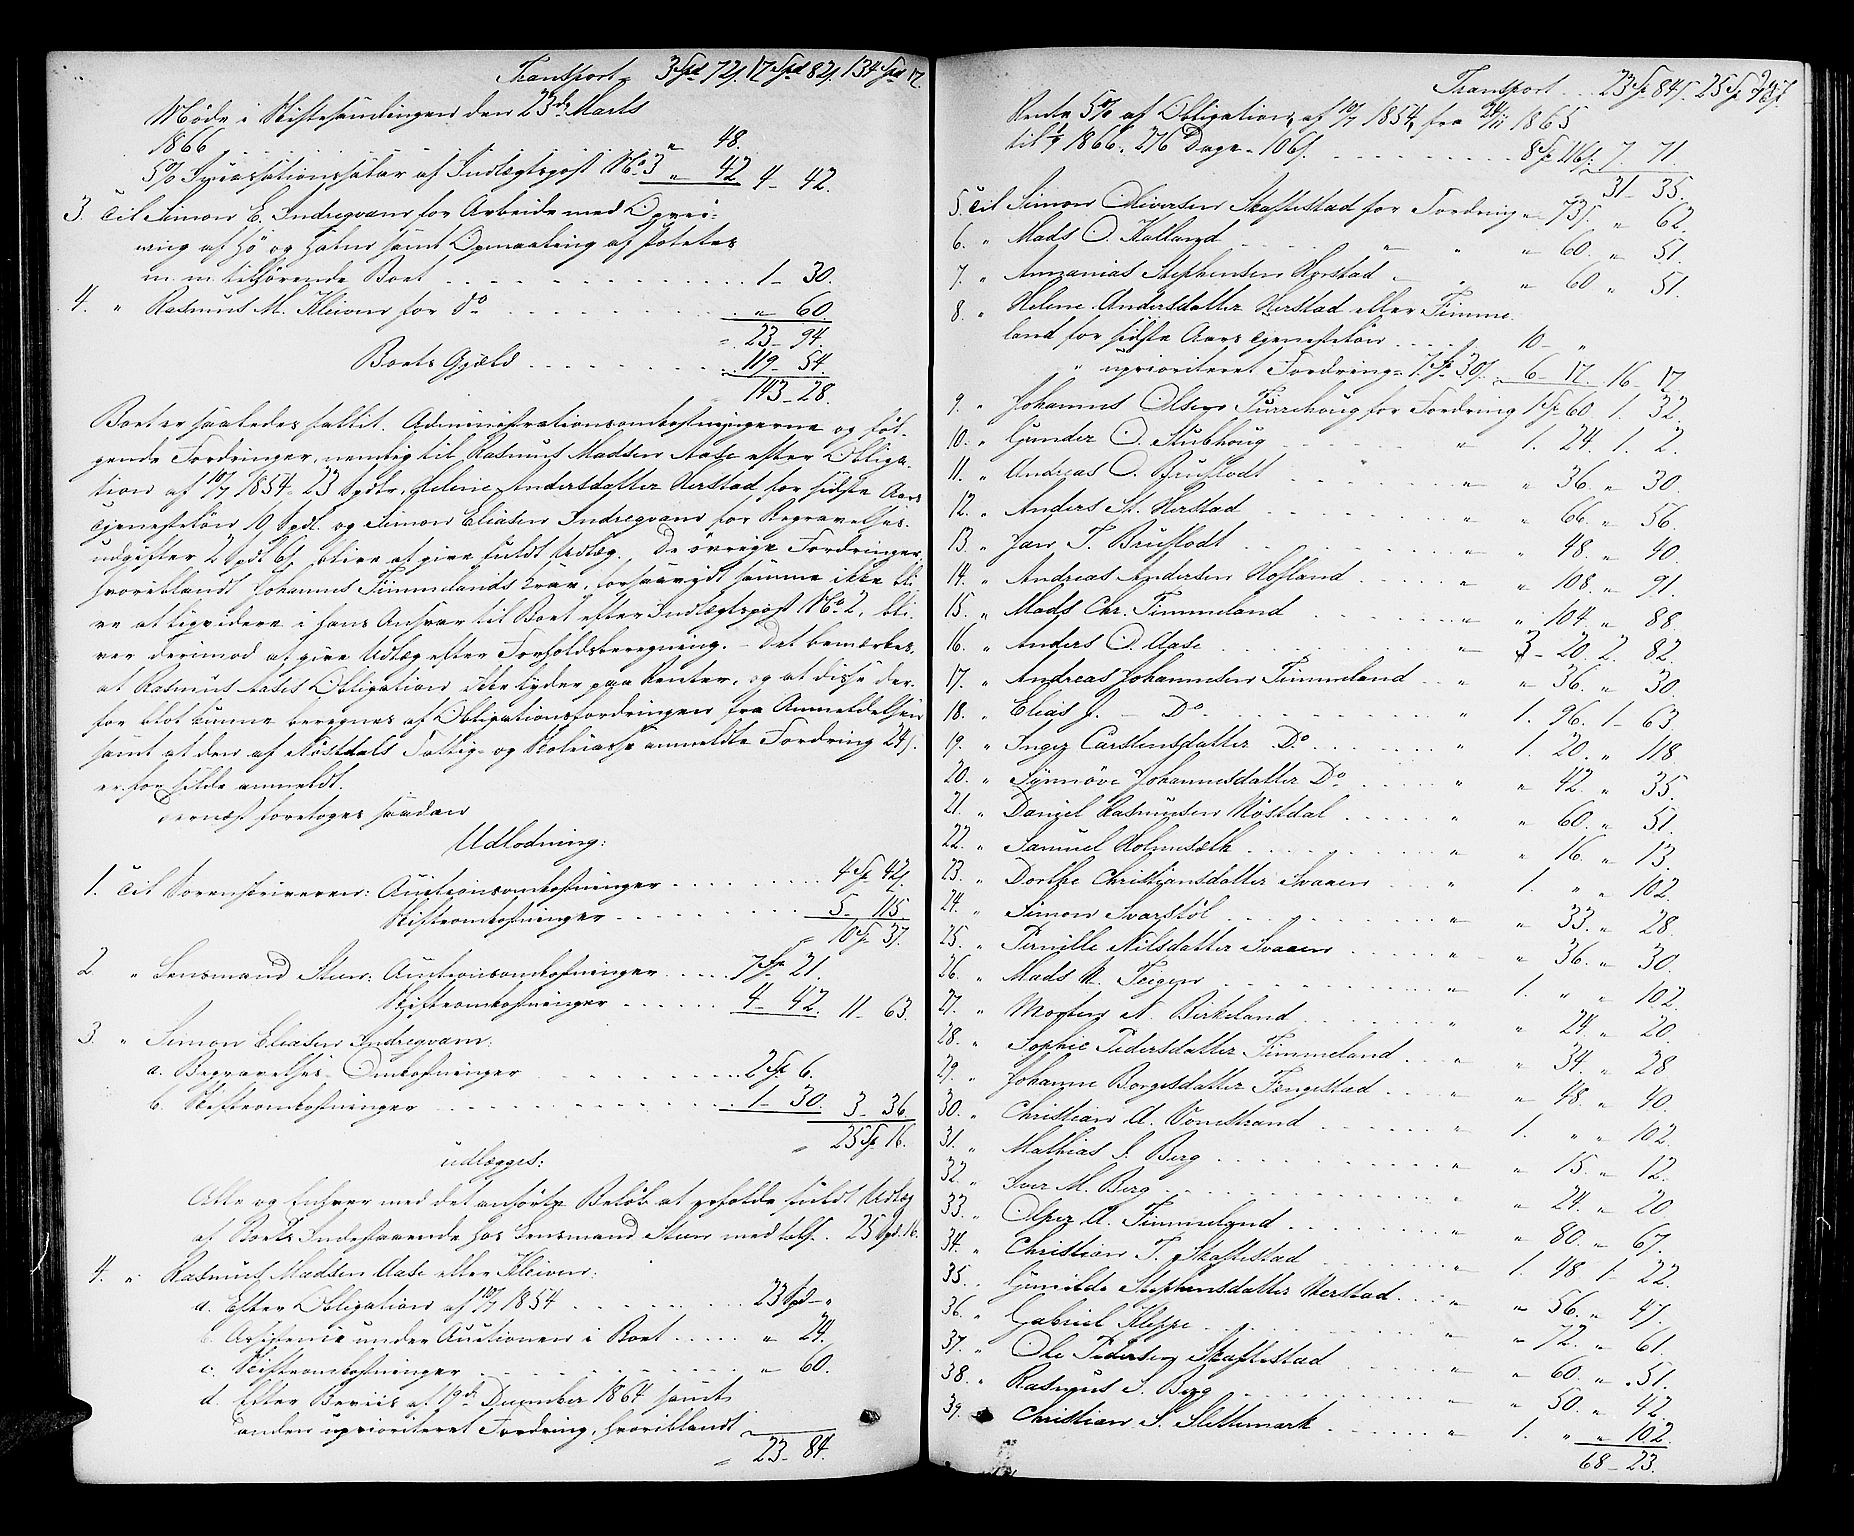 Transport 3 Spd 72 s. 17 Spd 82 s. 134 Spd 12
Møde i Skiftesamlingen den 23de Marts
1866 . . . . . . . . " 48.
5% Incassationssalær af Indtægtspost No 3 " 42 4 - 42.
3. Til Simon E. Indregvam for Arbeide med
af Hø og Halm samt Opmaaling af Poteter
m. m. tilhørende Boet . . . . 1 - 30.
4. " Rasmus M. Kleiven for Do . . . . " 60.
23 - 94.
Boets Gjæld . . . . 119 - 54.
143 - 28.
Boet er saaledes fallit. Administrationsomkostningerne og føl-
gende Fordringer, nemlig til Rasmus Madsen Aase efter Obliga-
tion af 10/7 1854 23 Spdlr, Helene Andersdatter Herstad for sidste Aars
Tjenesteløn 10 Spdl. og Simon Eliasen Indregvam for Begravelses-
udgifter 2 Spdl 6 s. blive at give fuldt Udlæg. De øvrige Fordringer,
hvoriblandt Johannes Timmelands Krav, forsaavidt samme ikke bli-
ve at liqvidere i hans Ansvar til Boet efter Indtægtspost No 2, bli-
ver derimod at give Udlæg efter Forholdsberegning. - Det bemærkes,
at Rasmus Aases Obligation ikke lyder paa Renter, og at disse der-
for blot kunne beregnes af Obligationsfordringen fra Anmeldelsen
samt at den af Nøstdals Fattig- og Skolekasse anmeldte Fordring 24 s.
er for silde anmeldt.
Dernæst foretoges saadan
Udlodning:
1. Til Sorenskriveren: Auctionsomkostninger . . . . 4 Sp 42 s.
Skifteomkostninger . . . . 5 - 115
10 Sp 37.
2 " Lensmand Steen: Auctionsomkostninger . . . . 7 Sp 21.
Skifteomkostninger . . . . 4 - 42. 11 - 63.
3. " Simon Eliasen Indregvam:
a. Begravelses-Omkostninger . . . . 2 Sp 6.
b. Skifteomkostninger . . . . 1 - 30. 3 - 36.
25 Sp 16.
udlægges:
Alle og Enhver med det anførte Beløb at erholde fuldt Udlæg
af Boets Indestaaende hos Lensmand Steen med tilsf. 25 Spd. 16.
4. " Rasmus Madsen Aase eller Kleiven:
a. Efter Obligation af 10/7 1854 . . . . 23 Spd - "
b. Assistence under Auctionen i Boet . . . . " 24.
c. Skifteomkostninger . . . . " 60.
d. Efter Beviis af 19de December 1864 samt
anden uprioriteret Fordring, hvoriblandt
23 - 84.
Transport . . 23 Sp 84 s. 25 Sp
Rente 5% af Obligation af 10/7 1854, fra 24/11 1865
til 1866. 276 Dage = 106 s. . . . . 8 Sp 116 s. 7. 71.
31 - 35.
5. Til Simon Oliversen Skaftestad for Fordring " 73 s. " 62.
6. " Mads O. Kalland . . . . " " 60. " 51.
7. " Annanias Stephensen Herstad " " 60 " 51.
8. " Helene Andersdatter Herstad eller Timme-
land for sidste Aars Tjenesteløn . . . . 10 - "
" uprioriteret Fordring 7 Sp 30 s. 6 - 17. 16 - 17.
9. " Johannes Olsen Turrehoug for Fordring 1 Sp 60. 1. 32.
10. " Gunder O. Stubhoug . . . . " 1. 24. 1. 2.
11. " Andreas O. Brustodt . . . . " " 36. " 30.
12. " Anders St. Herstad . . . . " " 66. " 56.
13. " Jan T. Brustodt . . . . " " 48. " 40.
14. " Andreas Andersen Hofland . . . . " " 108. " 91.
15. " Mads Chr. Timmeland . . . . " " 104. " 88
16. " Anders O. Aase . . . . " 3 - 20. 2. 82.
17. " Andreas Johannesen Timmeland . . " " 36. " 30.
18. " Elias J. - Do. . . . . " 1. 96. 1 - 63.
19. " Inger Carstensdatter Do . . . . " 1. 20. " 118.
20. " Synnøve Johannesdatter Do . . . " " 42. " 35.
21. " Daniel Rasmussen Nøstdal . . . . " " 60. " 51.
22. " Samuel Holmesæth . . . . " " 16. " 13.
23. " Dorthe Christiansdatter Svaaen . . " 1. " " 102.
24. " Simon Svarstøl . . . . " " 33. " 28.
25. " Pernille Nilsdatter Svaaen . . . . " " 36. " 30.
26. " Mads N. Teigen . . . . " 1. " " 102.
27. " Morten A. Birkeland . . . . " " 24. " 20.
28. " Sophie Pedersdatter Timmeland . . . " " 34. " 28
29. " Johanne Borgesdatter Tengestad . . . " " 48. " 40.
30. " Christian A. Vonestrand . . . . " 1. " " 102.
31. " Mathias J. Berg . . . . " " 15. " 12.
32. " Iver M. Berg . . . . " " 24. " 20
33. " A. Timmeland . . . . " " 80. " 67.
34. " Christian T. Skaftestad . . . . " 1. 48 1 - 22.
35. " Gunilde Stephensdatter Herstad . . . " " 56. " 47.
36. " Gabriel Kleppe . . . . " " 72. " 61.
37. " Ole Pedersen Skaftestad . . . . " " 60. " 51.
38. " Rasmus S. Berg . . . . " " 50. " 42.
39. " Christian S. Slettemark . . . . " 1. " " 102.
68 - 23.